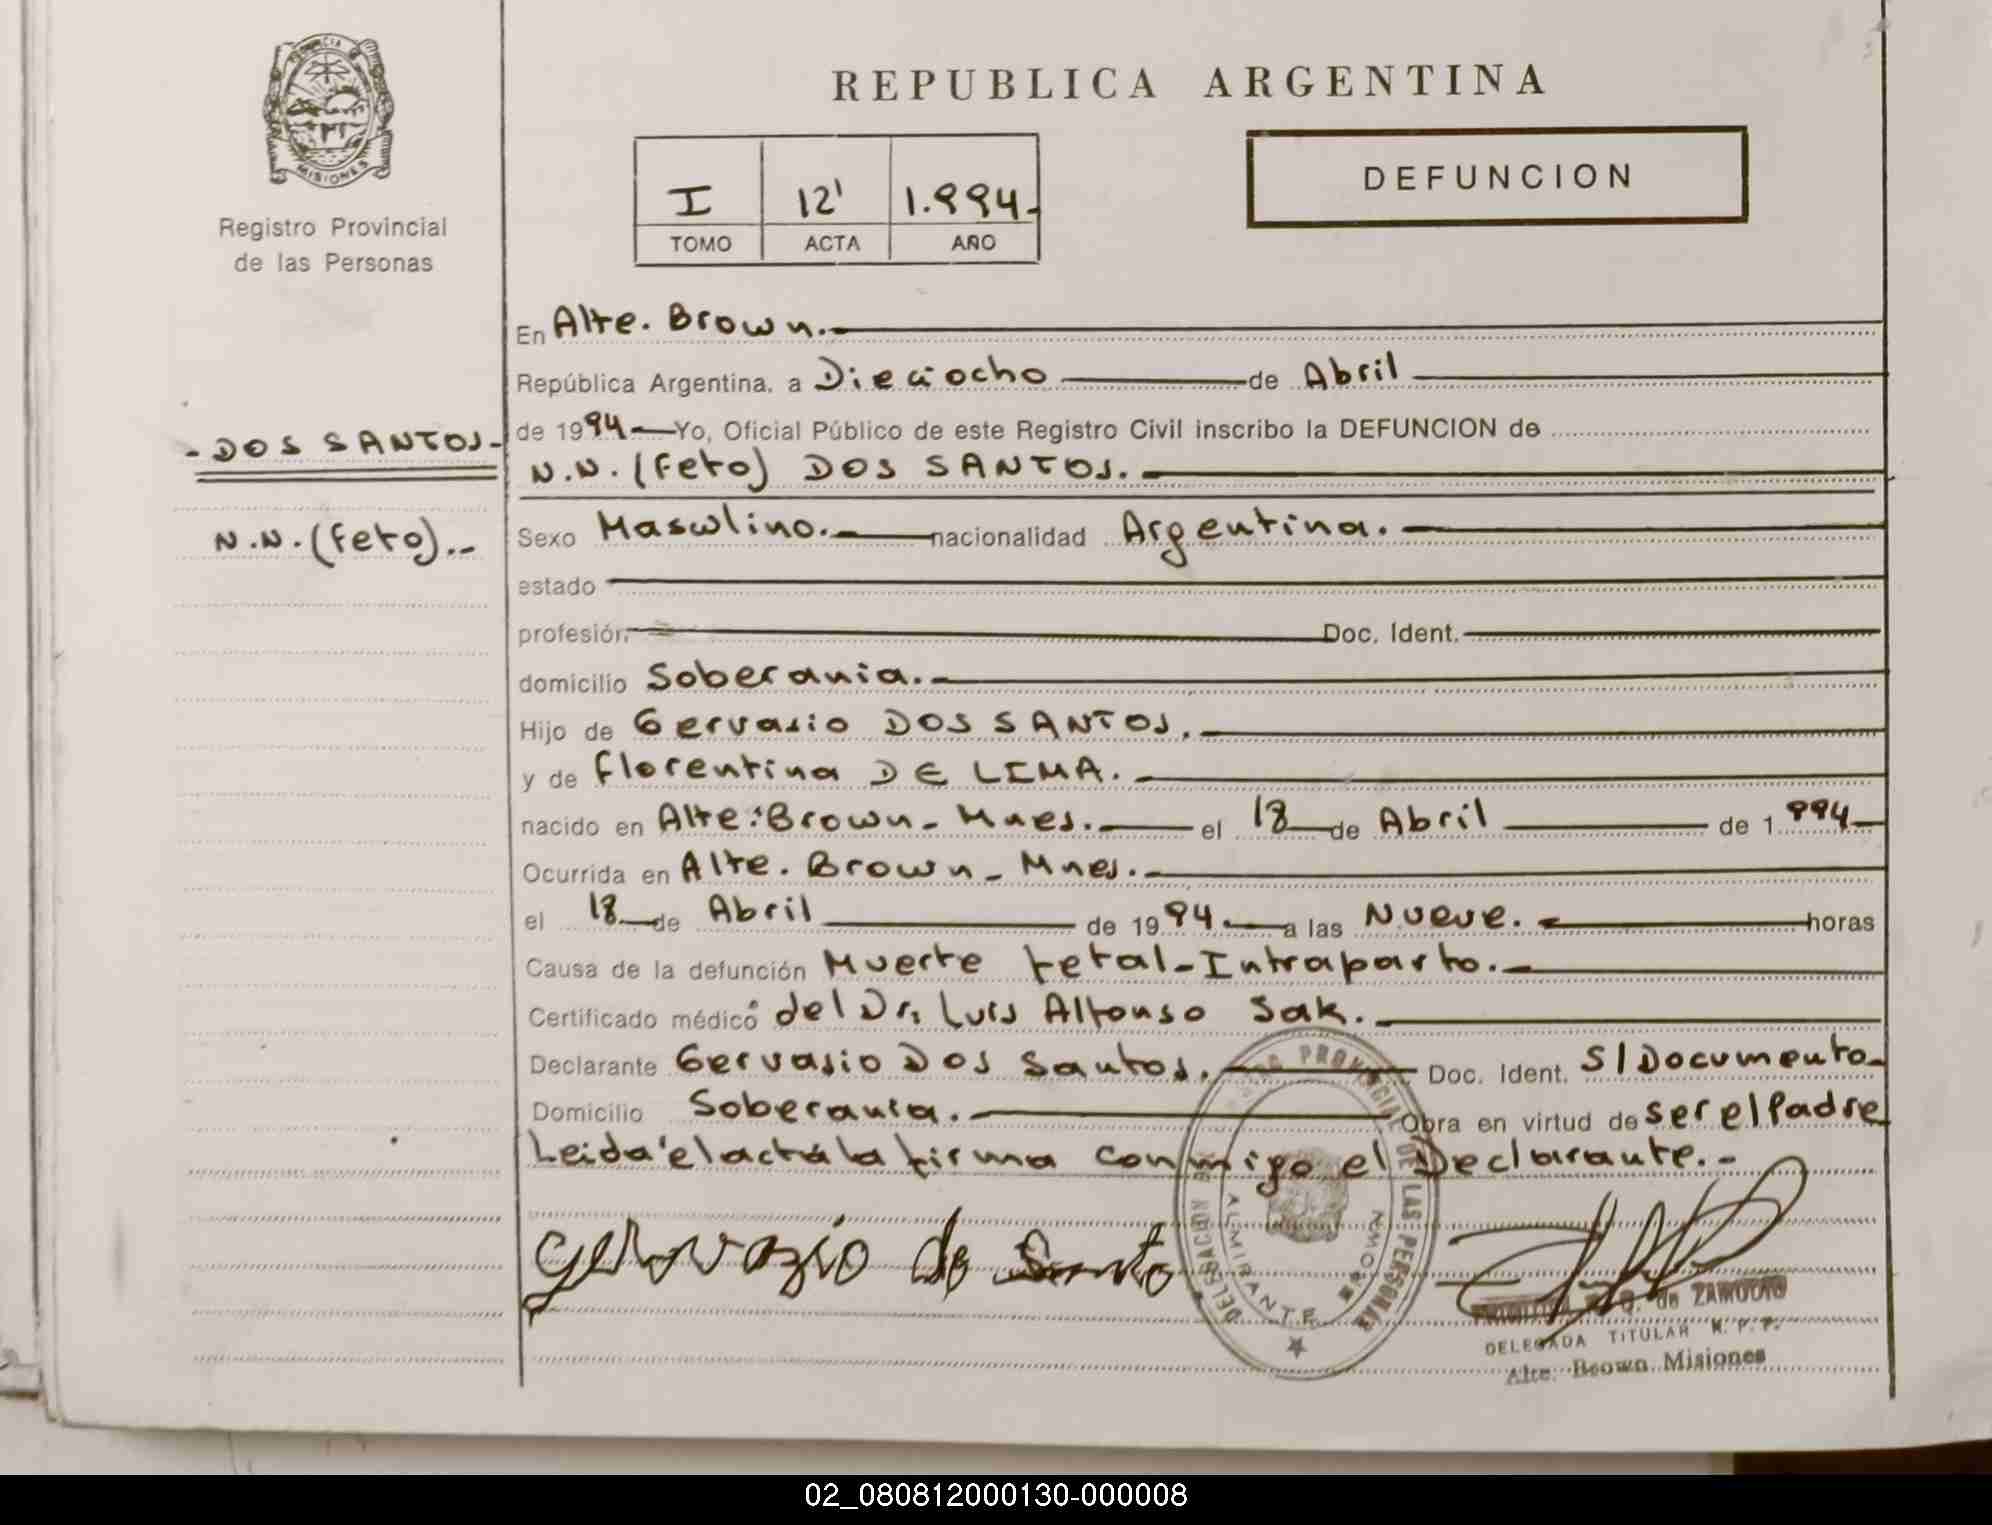 PROVINCIA DE
MISIONES
Registro Provincial
de las Personas
REPUBLICA ARGENTINA
DEFUNCION
I 12' 1.994-
TOMO ACTA AÑO
En Alte. Brown.-
República Argentina, a Dieciocho de Abril
- DOS SANTOS - de 1994 Yo, Oficial Público de este Registro Civil inscribo la DEFUNCION de
N.N. (Feto) DOS SANTOS.
N.N. (Feto).- Sexo Masculino.- nacionalidad Argentina.-
estado
profesión Doc. Ident.
domicilio Soberania.-
Hijo de Gervasio DOS SANTOS.
y de Florentina DE LIMA.
nacido en Alte. Brown- Mnes.- el 18 de Abril de 1 994
Ocurrida en Alte. Brown- Mnes.-
el 18 de Abril de 1994.- a las Nueve. horas
Causa de la defunción Muerte fetal-Intraparto.-
Certificado médico del Dr. Luis Alfonso Sak.-
Declarante Gervasio Dos Santos. Doc. Ident. S/Documento-
Domicilio Soberania. Obra en virtud de ser el Padre
Leida el acta la firma conmigo el Declarante.-
DELEGACION REGISTRO PROVINCIAL DE LAS PERSONAS
ALMIRANTE BROWN
Q. de ZAMUDIO
DELEGADA TITULAR R. P. P.
Alte. Brown Misiones
02_080812000130-000008